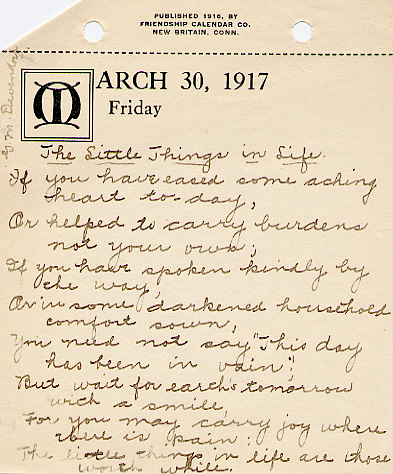 PUBLISHED 1916, BY
FRIENDSHIP CALENDAR CO.
NEW BRITAIN, CONN.
MARCH 30, 1917
Friday
The Little Things in Life.
If you have eased some aching
heart to-day,
Or helped to carry burdens
not your own,
If you have spoken kindly by
the way,
Or in some darkened household
comfort sown,
You need not say "This day
has been in vain",
But wait for earth's tomorrow
with a smile,
For you may carry joy where
there is pain:
The little things in life are those
worth while.